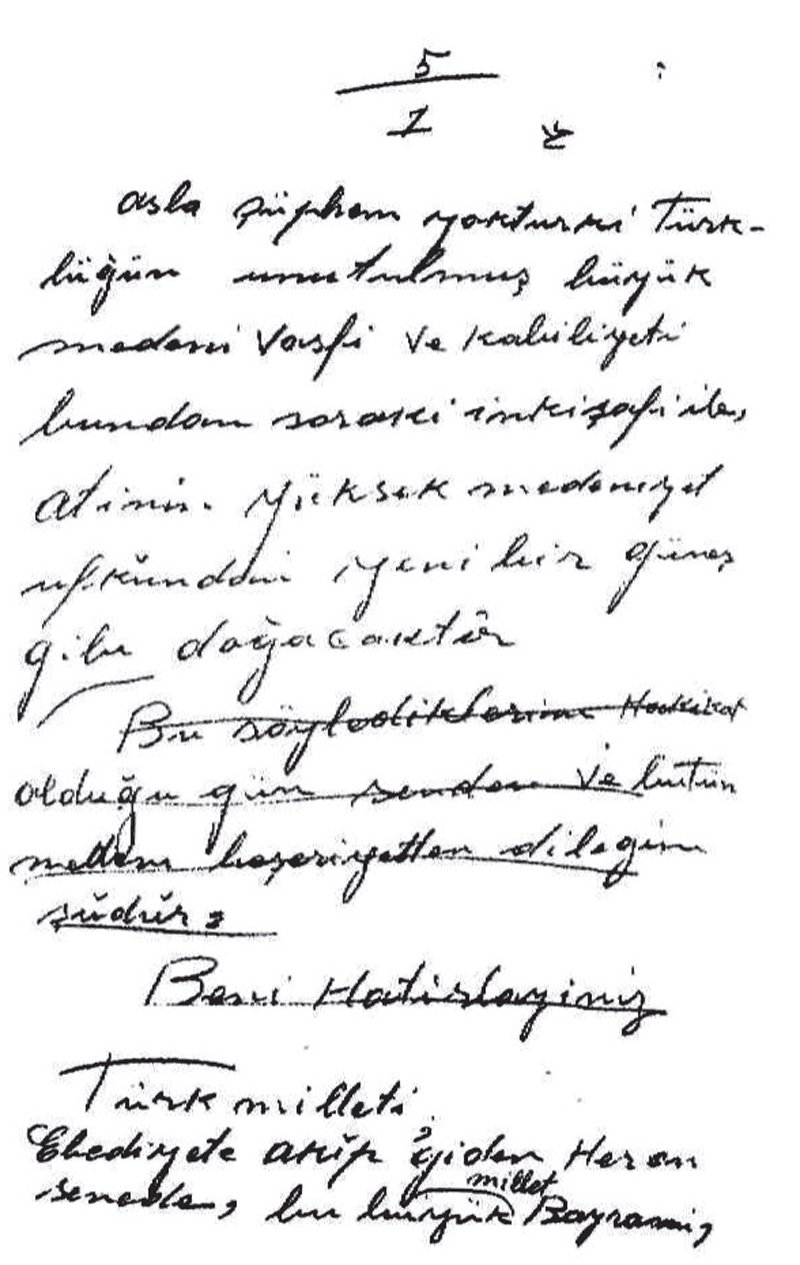 5
1
asla şüphem yokturki Türk-
lüğün unutulmuş büyük
medeni vasfi ve kabiliyeti
bundan sonraki inkişafi ile,
atinin yüksek medeniyet
ufkundan yeni bir güneş
gibi doğacaktır
Bu söylediklerim Hakikat
olduğu gün senden ve bütün
medeni beşeriyetten dileğim
şudur:
Beni Hatirlayiniz
Türk milleti
Ebediyete akıp giden Her on
senede, bu büyük millet Bayrami,